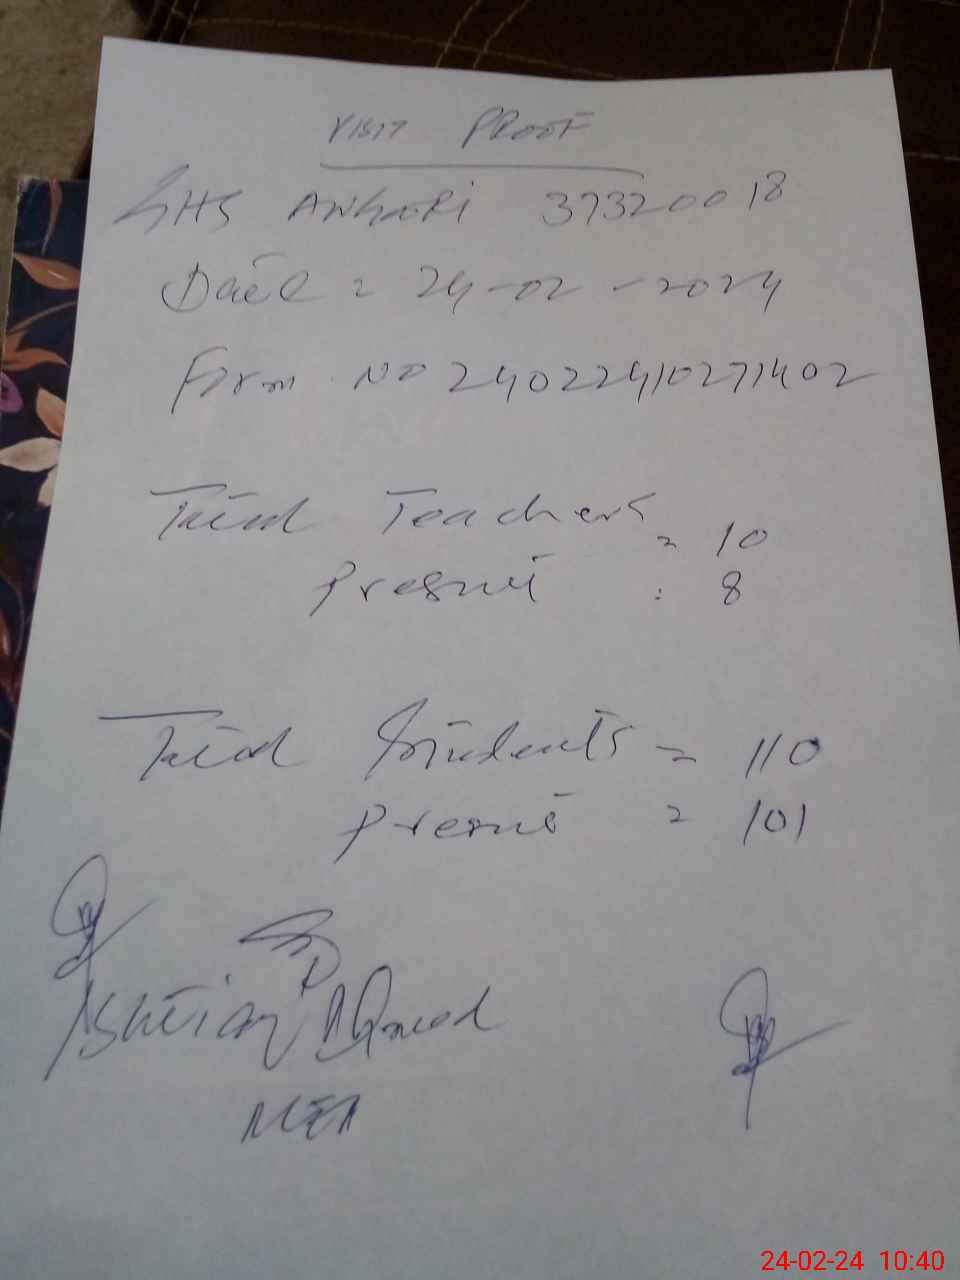 VISIT PROOF
GHS ANGORI 37320018
Date = 24-02-2024
Form NO 24022410271402
Total Teachers = 10
Present : 8
Total Students = 110
Present = 101
Ishtiaq Ahmed
MEA
24-02-24 10:40